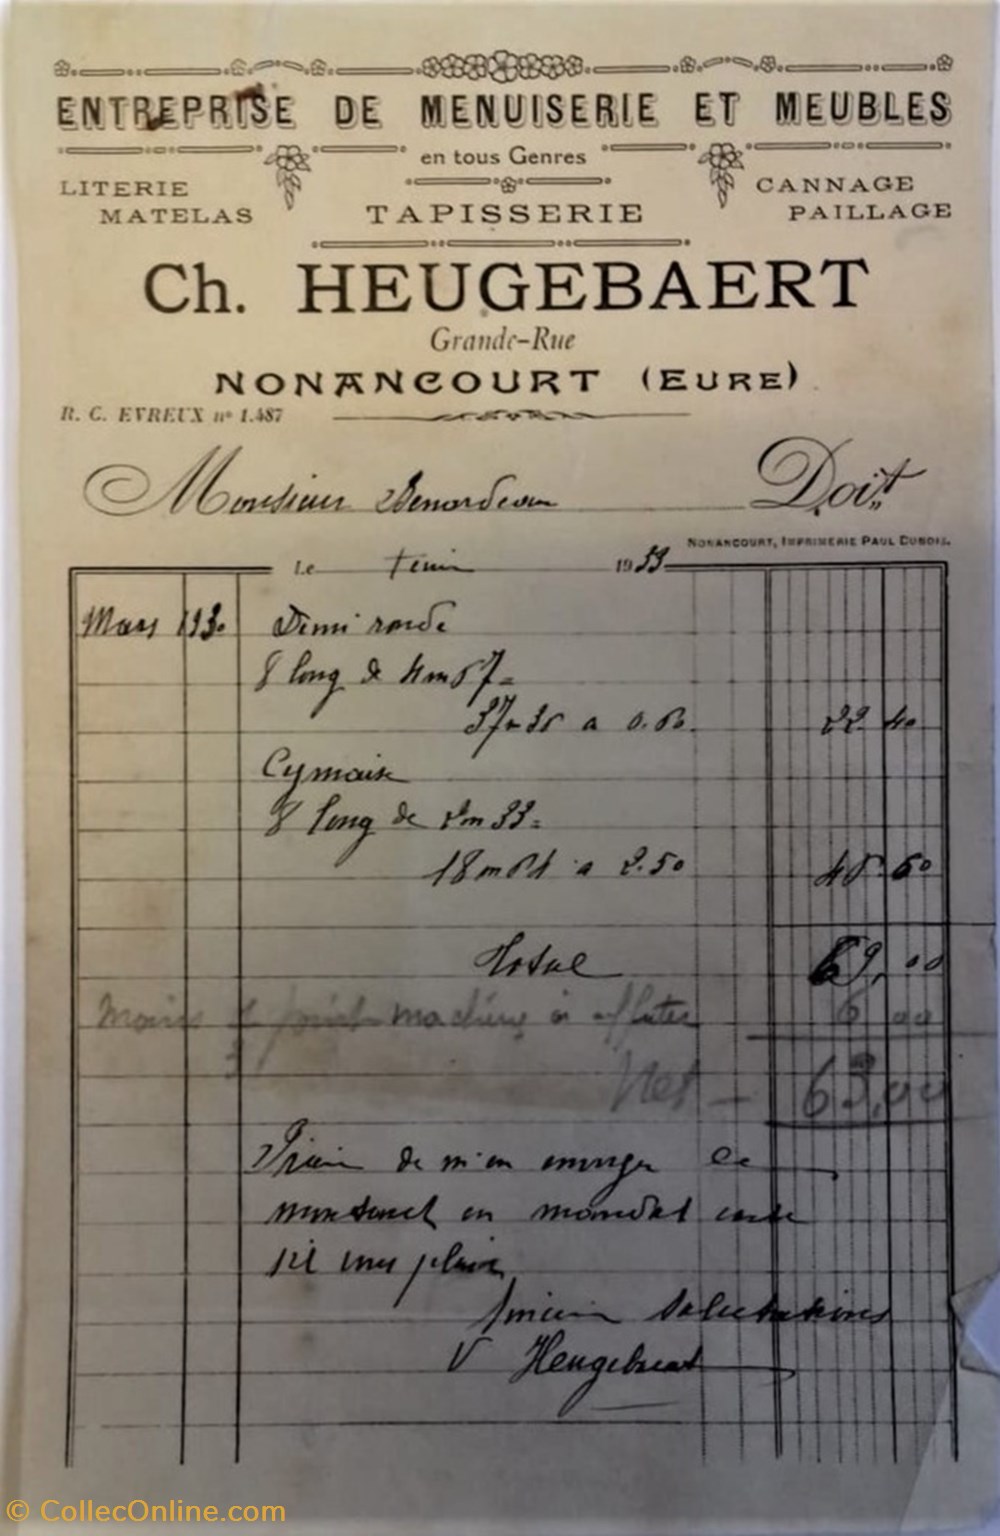 ENTREPRISE DE MENUISERIE ET MEUBLES
en tous Genres
LITERIE
MATELAS
TAPISSERIE
CANNAGE
PAILLAGE
Ch. HEUGEBAERT
Grande-Rue
NONANCOURT (EURE)
R. C. EVREUX nº 1.487
Monsieur Doit
NONANCOURT, IMPRIMERIE PAUL DUBOIS.
Le 1933
Mars 1930 Demi ronde
8 long de 4m67=
37m36 a 0.60. 22 40
Cymaise
8 long de 2m33=
18m64 a 2.50 46.60
Total 69,00
moins machine à affuter 6 00
Net — 63,00
Prière de m'en envoyer le
montant en mandat carte
s'il vous plait
Sincères Salutations
V Heugebaert
© CollecOnline.com